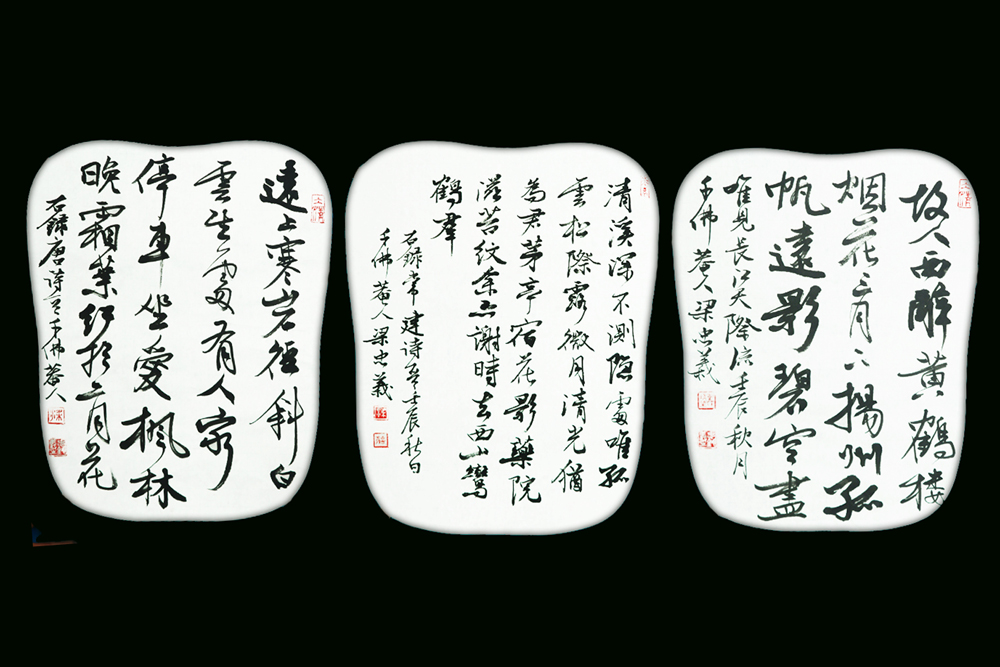 故人西辭黃鶴樓
烟花三月下揚州孤
帆遠影碧空盡
唯見長江天際流壬辰秋月
千佛菴人梁忠義
清溪深不測隱處唯孤
雲松際露微月清光猶
為君茅亭宿花影藥院
滋苔紋余亦謝時去西山鸞
鶴羣
右錄常建詩一首壬辰秋日
千佛菴人梁忠義
遠上寒岩徑斜白
雲生處有人家
停車坐愛楓林
晚霜葉紅於二月花
右錄唐詩一首千佛菴人